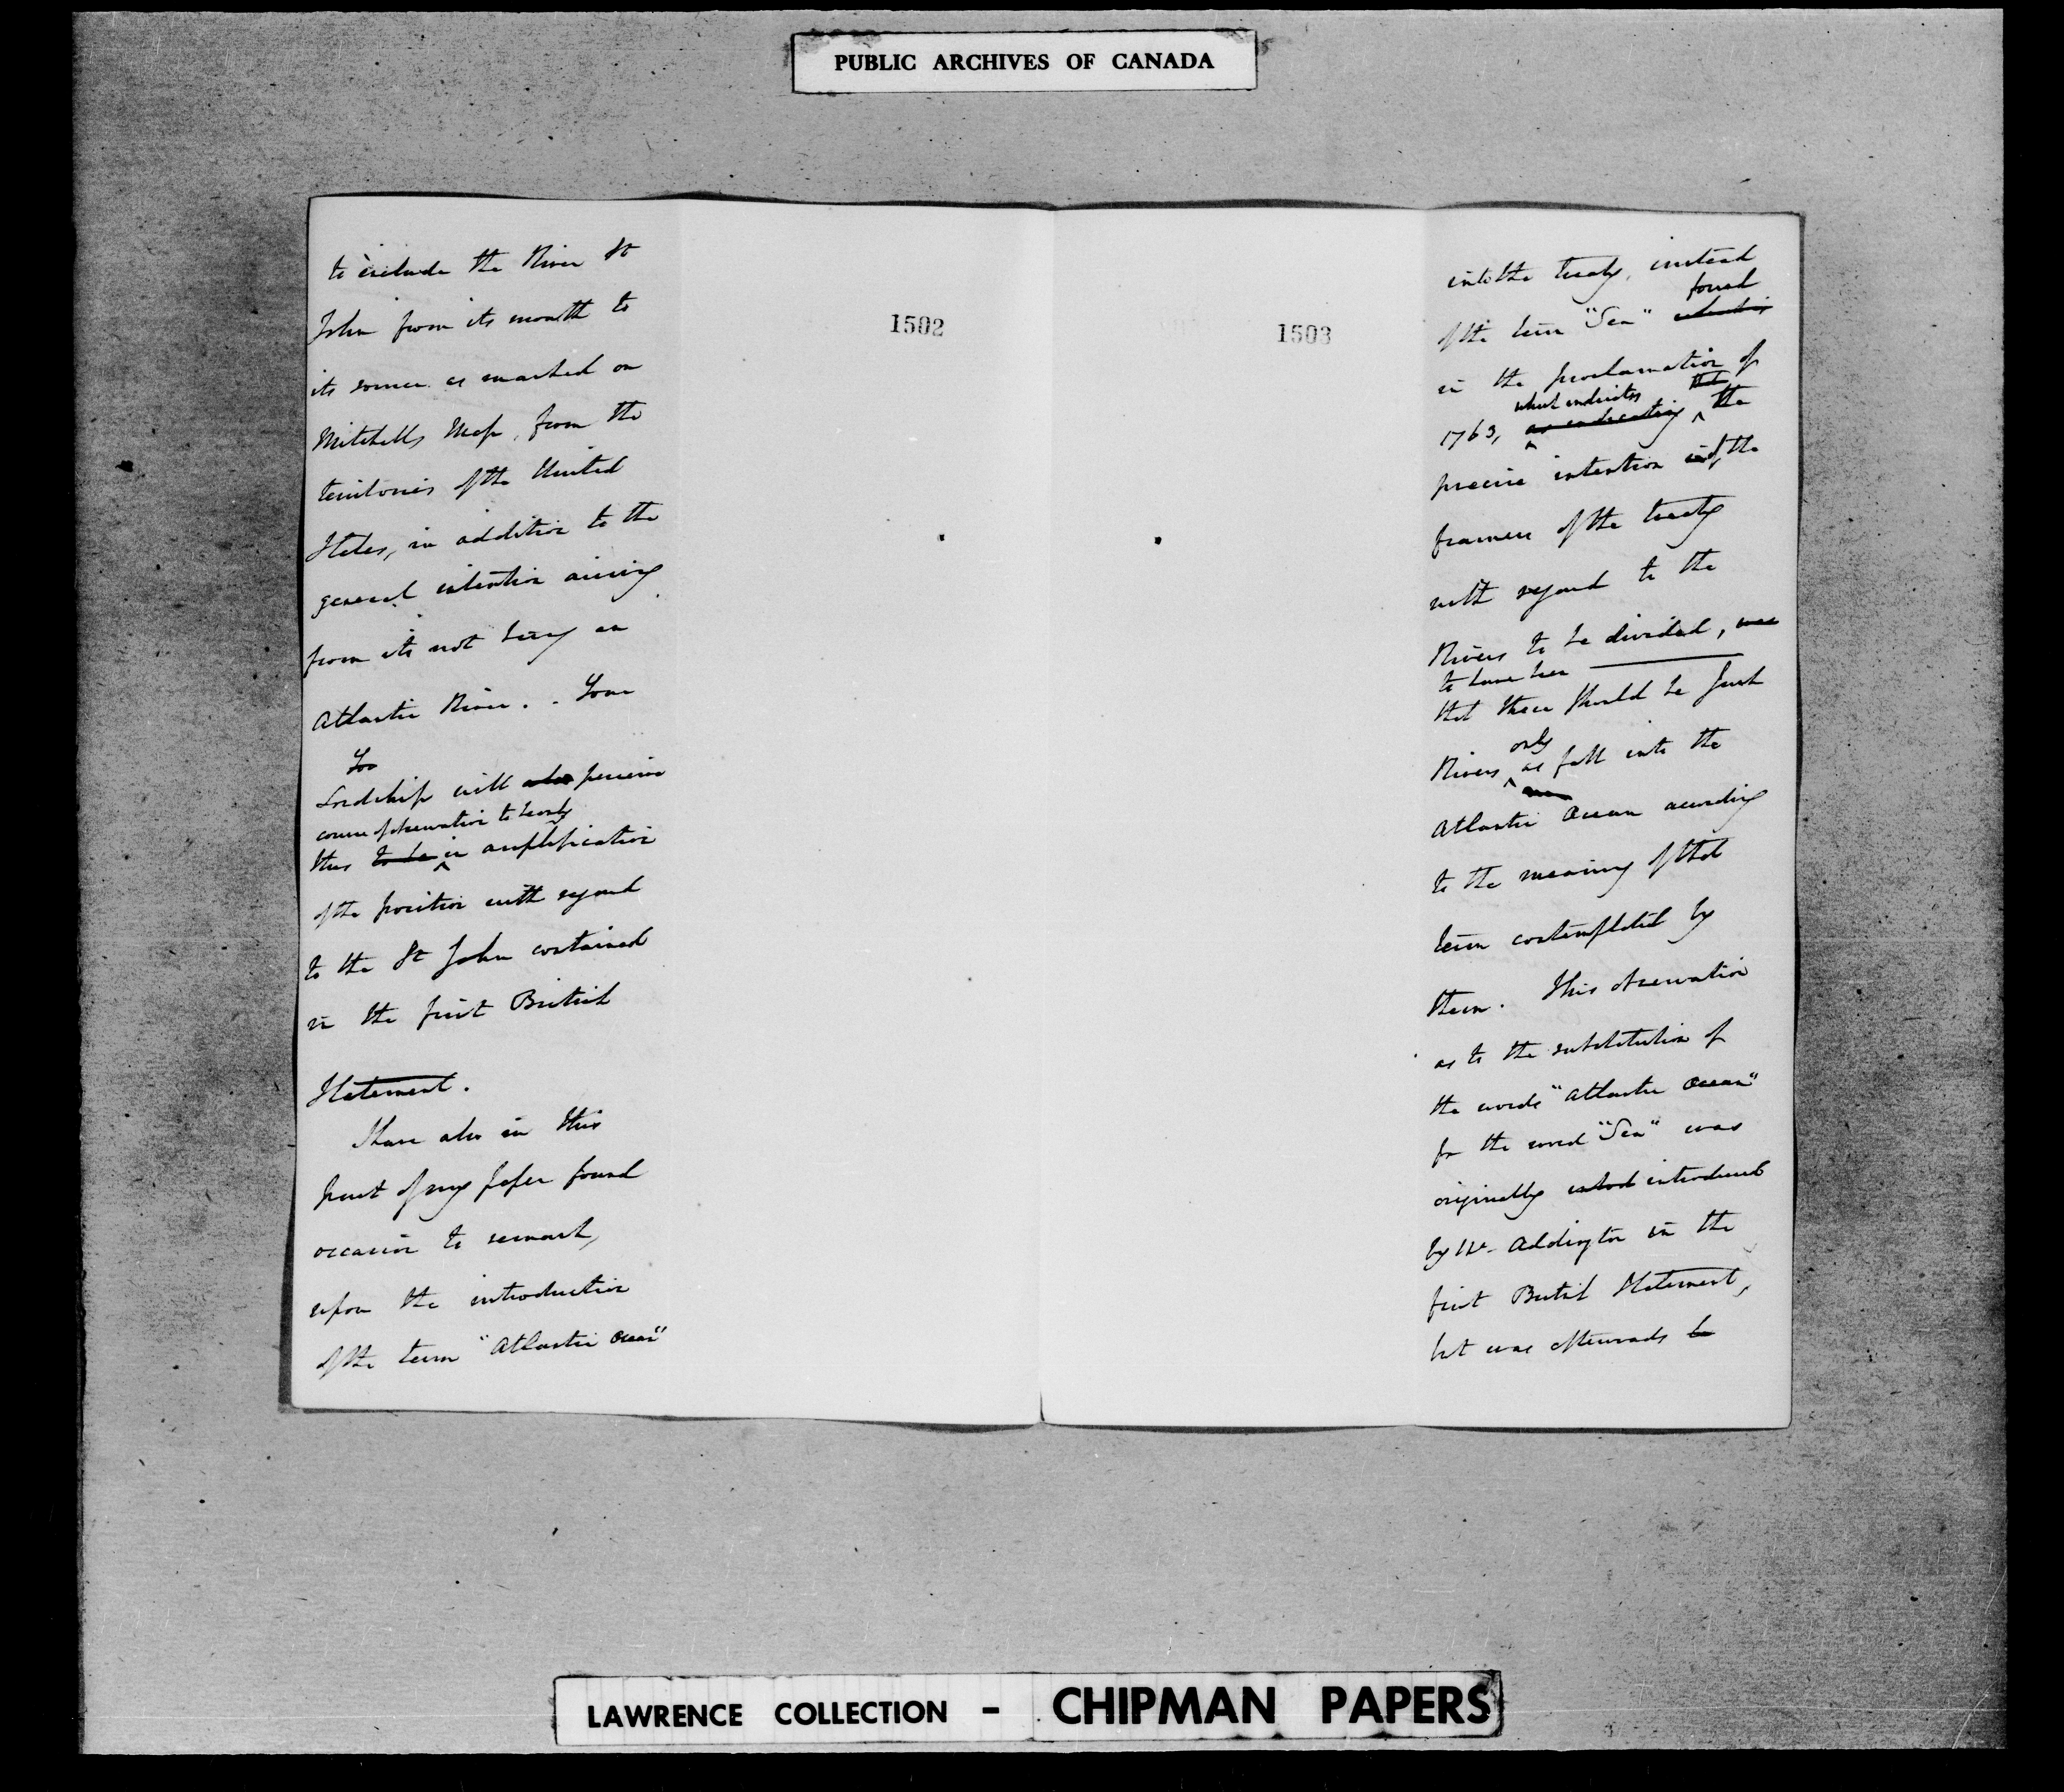 PUBLIC ARCHIVES OF CANADA
1502
to exclude the River St
John from its mouth to
its source as marked on
Mitchells Map, from the
territories of the United
States, in addition to the
general intention arising
from its not being an
Atlantic River. . Your
Lordship will also perceive
course of observation to be only
this to be in amplification
of the position with regard
to the St John contained
in the first British
Statement.
I have also in this
part of my paper found
occasion to remark,
upon the introduction
of the term "Atlantic Ocean"
1503
into the treaty, instead
found
of the term "Sea"
in the proclamation of
which indicates that
1763, as indicating the
precise intention of the
framers of the treaty
with regard to the
Rivers to be divided, was
to have been
that these should be such
only
Rivers as fall into the
Atlantic Ocean according
to the meaning of that
term contemplated by
them. This observation
as to the substitution of
the words "Atlantic Ocean"
for the word "Sea" was
originally introduced
by Mr. Addington in the
first British Statement,
but was afterwards be
LAWRENCE COLLECTION - CHIPMAN PAPERS